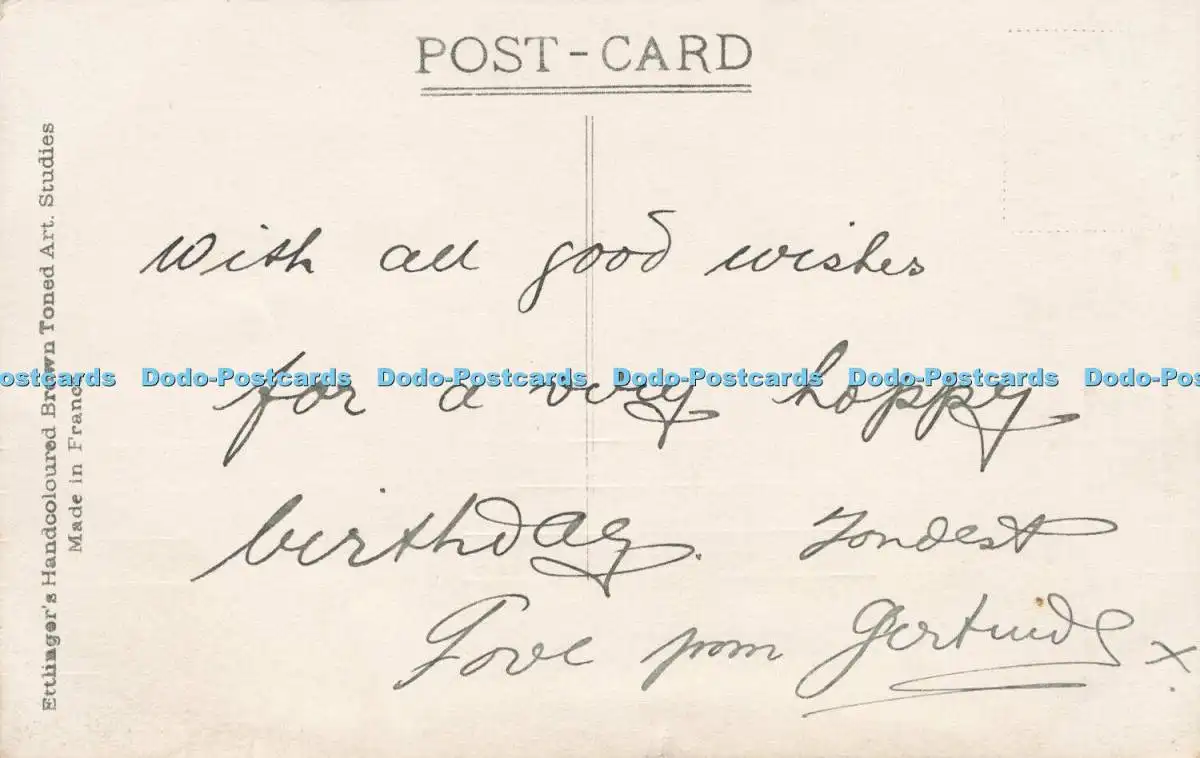 POST-CARD
With all good wishes
for a very happy
birthday. Fondest
Love from Gertrude x
Ettlinger's Handcoloured Brown Toned Art. Studies
Made in France
Dodo-Postcards Dodo-Postcards Dodo-Postcards Dodo-Postcards Dodo-Postcards Dodo-Pos